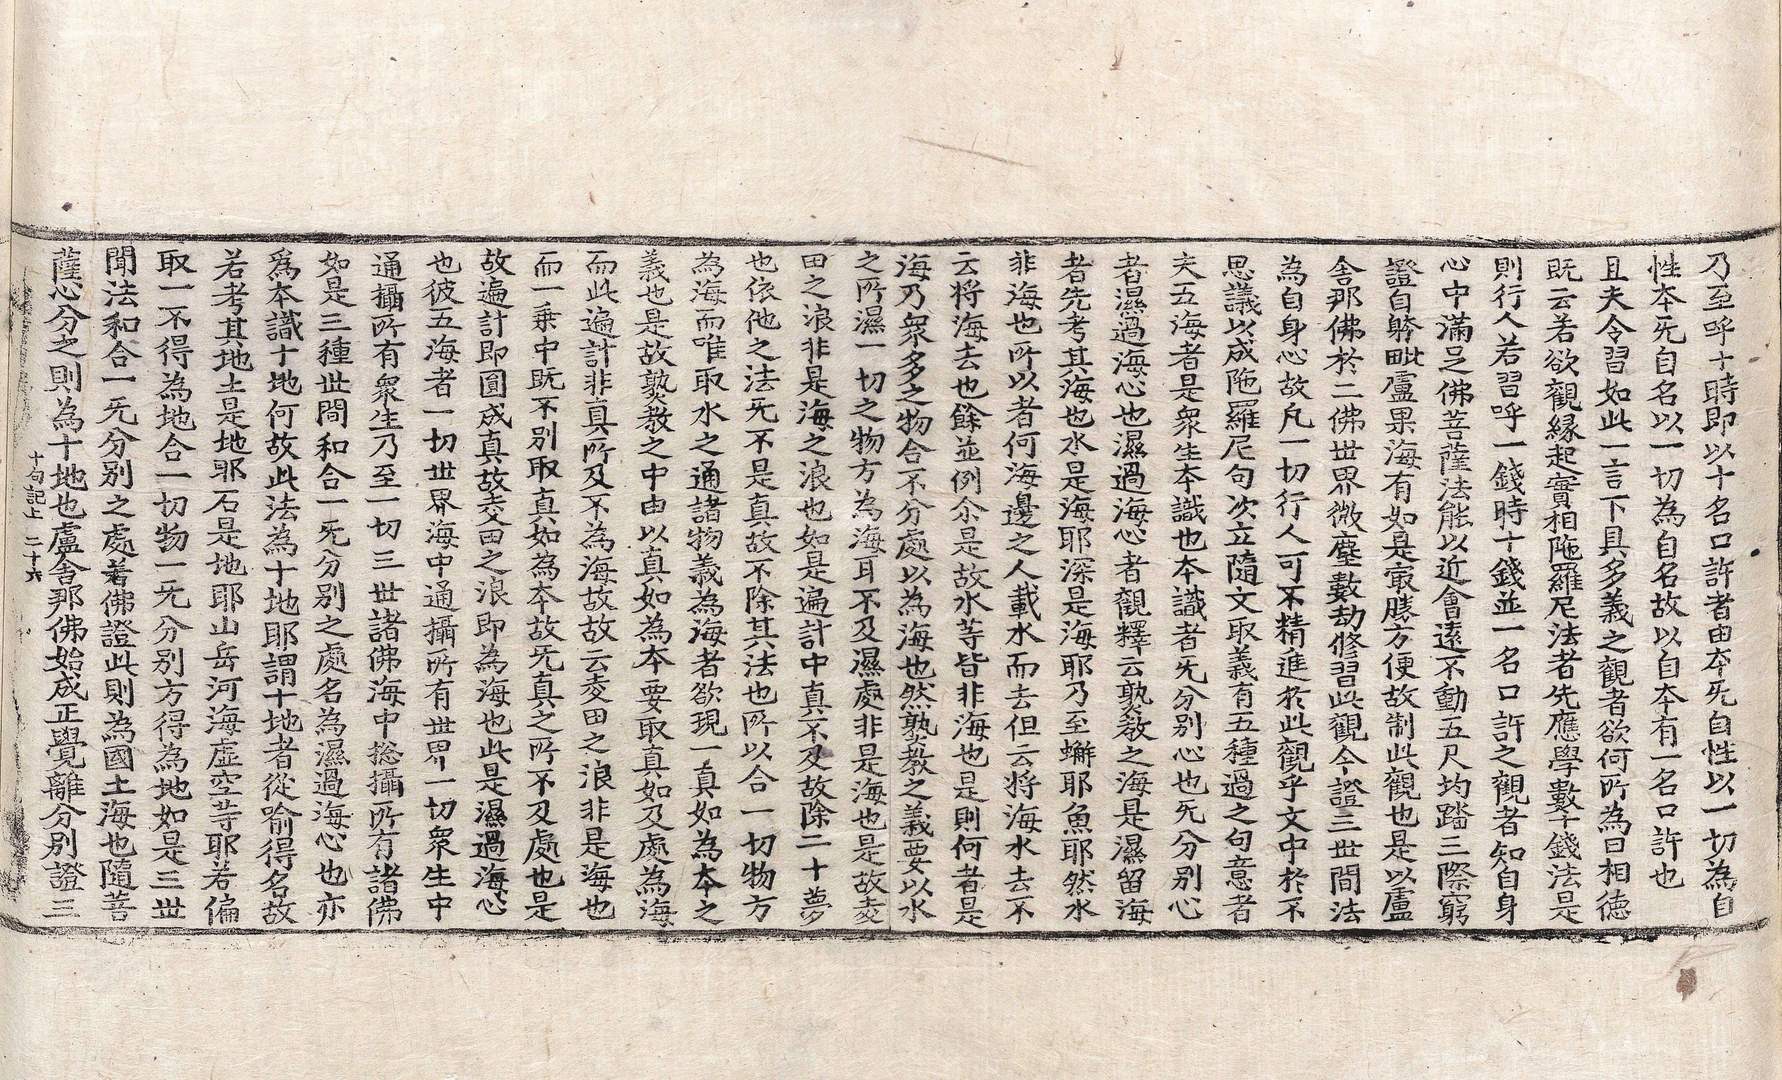 乃至呼十時即以十名口許者由本旡自性以一切為自
性本旡自名以一切為自名故以自本有一名口許也
且夫令習如此一言下具多義之觀者欲何所為曰相徳
既云若欲觀緣起實相陁羅尼法者先應學數十錢法是
則行人若習呼一錢時十錢並一名口許之觀者知自身
心中滿足佛菩薩法能以近會遠不動五尺均踏三際窮
證自躰毗盧果海有如是㝡勝方便故制此觀也是以盧
舍那佛於二佛世界微塵數劫修習此觀今證三世間法
為自身心故凡一切行人可不精進於此觀乎文中於不
思議以成陁羅尼句次立隨文取義有五種過之句意者
夫五海者是衆生本識也本識者旡分別心也旡分別心
者濕過海心也濕過海心者觀釋云孰敎之海是濕留海
者先考其海也水是海耶深是海耶乃至蠏耶魚耶然水
非海也所以者何海邊之人載水而去但云將海水去不
云将海去也餘並例尒是故水等皆非海也是則何者是
海乃衆多之物合不分處以為海也然孰敎之義要以水
之所濕一切之物方為海耳不及濕處非是海也是故夌
田之浪非是海之浪也如是遍計中真不及故除二十夢
也依他之法旡不是真故不除其六法也所以合一切物方
為海而唯取水之通諸物義為海者欲現一真如為本之
義也是故孰敎之中由以真如為本要取真如及處為海
而此遍計非真所及不為海故故云夌田之浪非是海也
而一乗中既不別取真如為本故旡真之所不及處也是
故遍計即圓成真故夌田之浪即為海也此是濕過海心
也彼五海者一切世界海中通攝所有世界一切衆生中
通攝所有衆生乃至一切三世諸佛海中捴攝所有諸佛
如是三種世間和合一旡分別之處名為濕過海心也亦
爲本識十地何故此法為十地耶謂十地者從喻得名故
若考其地土是地耶石是地耶山岳河海虛空等耶若偏
取一不得為地合一切物一旡分別方得為地如是三世
聞法和合一旡分別之處若佛證此則為國土海也隨菩
十句記上　二十六
薩心分之則為十地也盧舍那佛始成正覺離分別證三